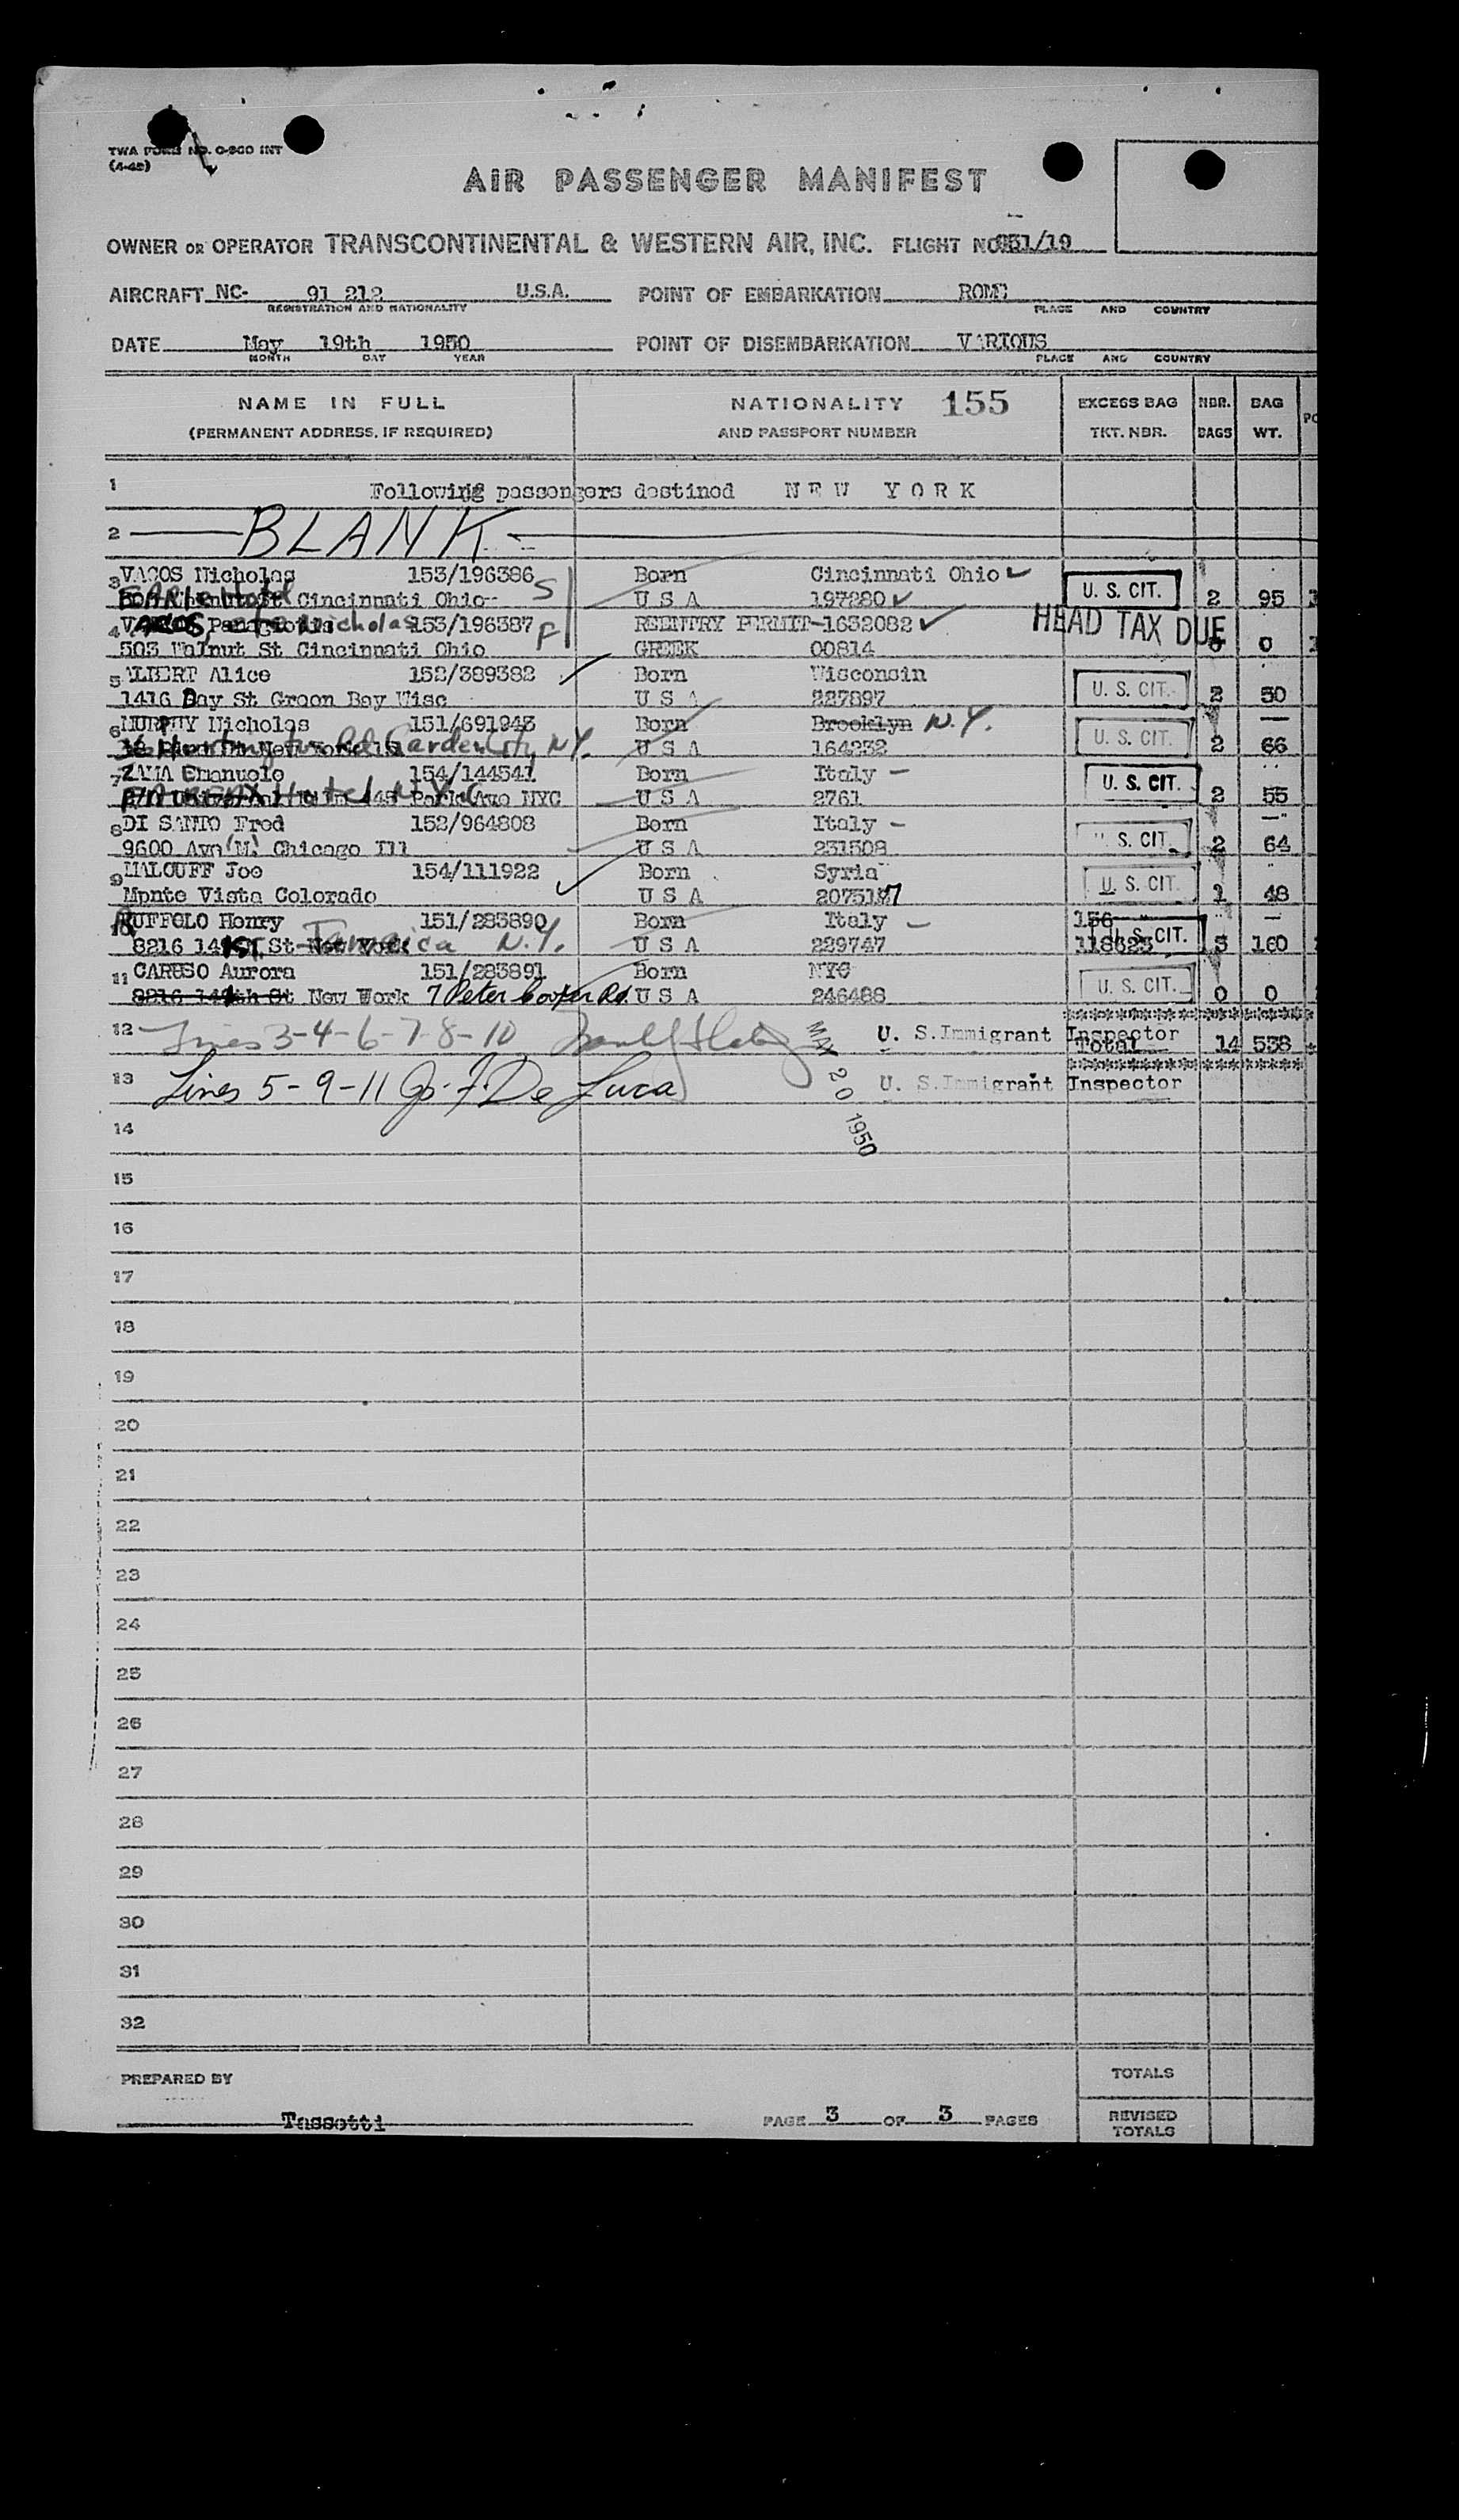 TWA FORM NO. 0-800 INT
(4-48)
AIR PASSENGER MANIFEST
OWNER OR OPERATOR TRANSCONTINENTAL & WESTERN AIR, INC. FLIGHT NO 931/19
AIRCRAFT NC- 91 212 U.S.A. POINT OF EMBARKATION ROME
REGISTRATION AND NATIONALITY PLACE AND COUNTRY
DATE May 19th 1950 POINT OF DISEMBARKATION VARIOUS
MONTH DAY YEAR PLACE AND COUNTRY
NAME IN FULL NATIONALITY 155 EXCESS BAG NBR. BAG
(PERMANENT ADDRESS, IF REQUIRED) AND PASSPORT NUMBER TKT. NBR. BAGS WT.
1 Following passengers destined NEW YORK
2 BLANK
3 VACOS Nicholas 153/196386 S Born Cincinnati Ohio U. S. CIT.
Cincinnati Ohio U S A 197280 2 95
4 Nicholas 153/196387 F REENTRY PERMIT-1632082 HEAD TAX DUE
503 Walnut St Cincinnati Ohio GREEK 00814 0 0
5 ALBERT Alice 152/389382 Born Wisconsin U. S. CIT.
1416 Day St Green Bay Wisc U S A 227897 2 50
6 MURPHY Nicholas 151/691943 Born Brooklyn N.Y. U. S. CIT.
Garden City N.Y. U S A 164232 2 66
7 ZAMA Emanuele 154/144541 Born Italy U. S. CIT.
Hotel N.Y.C Park Ave NYC U S A 2761 2 55
8 DI SANTO Fred 152/964808 Born Italy S. CIT.
9600 Ave (M) Chicago Ill U S A 231508 2 64
9 MALOUFF Joe 154/111922 Born Syria U. S. CIT.
Monte Vista Colorado U S A 1 48
10 RUFFOLO Henry 151/283890 Born Italy 156
8216 141ST St New York Jamaica N.Y. U S A 229747 118623 U. S. CIT. 5 160
11 CARUSO Aurora 151/283891 Born NYC U. S. CIT.
8216 148th St New Work 7 Peter Cooper Rd. U S A 246488 0 0
12 Lines 3-4-6-7-8-10 U. S. Immigrant Inspector Total 14 538
13 Lines 5-9-11 Jo. F. De Luca U. S. Immigrant Inspector
MAY 20 1950
14
15
16
17
18
19
20
21
22
23
24
25
26
27
28
29
30
31
32
PREPARED BY TOTALS
Tassotti PAGE 3 OF 3 PAGES REVISED TOTALS